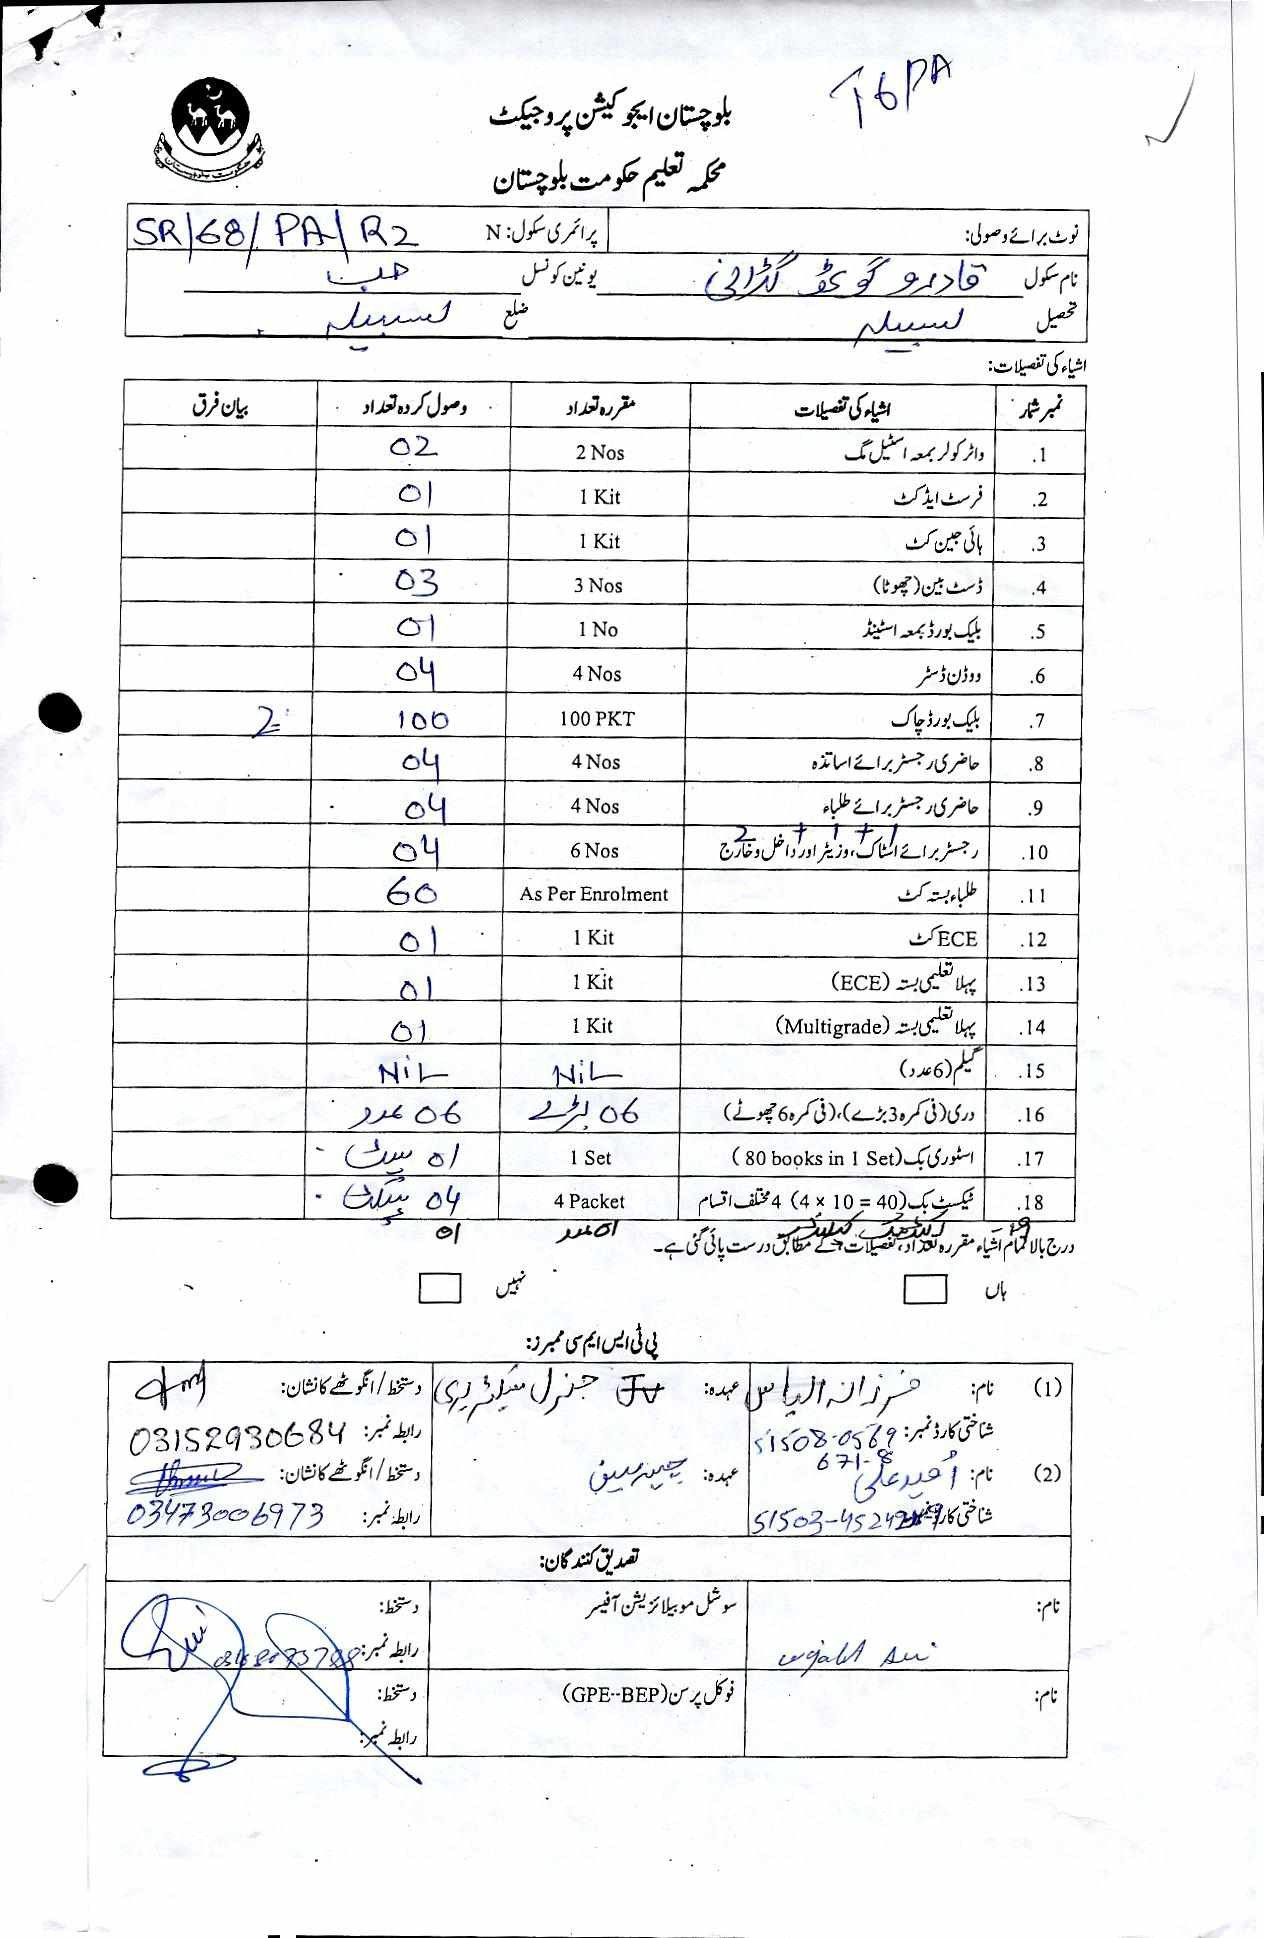 T6PA
بلوچستان ایجوکیشن پروجیکٹ
محکمہ تعلیم حکومت بلوچستان
نوٹ برائے وصولی: پرائمری سکول: N SR/68/PA/R2
نام سکول قادرو گوٹھ گڈانی یونین کونسل حب
تحصیل لسبیلہ ضلع لسبیلہ
اشیاء کی تفصیلات:
نمبر شمار اشیاء کی تفصیلات مقررہ تعداد وصول کردہ تعداد بیان فرق
1. واٹر کولر بمعہ اسٹیل مگ 2 Nos 02
2. فرسٹ ایڈ کٹ 1 Kit 01
3. ہائی جین کٹ 1 Kit 01
4. ڈسٹ بین (چھوٹا) 3 Nos 03
5. بلیک بورڈ بمعہ اسٹینڈ 1 No 01
6. ووڈن ڈسٹر 4 Nos 04
7. بلیک بورڈ چاک 100 PKT 100 2
8. حاضری رجسٹر برائے اساتذہ 4 Nos 04
9. حاضری رجسٹر برائے طلباء 4 Nos 04
2 + 1 + 1
10. رجسٹر برائے اسٹاک، وزیٹر اور داخل و خارج 6 Nos 04
11. طلباء بستہ کٹ As Per Enrolment 60
12. ECE کٹ 1 Kit 01
13. پہلا تعلیمی بستہ (ECE) 1 Kit 01
14. پہلا تعلیمی بستہ (Multigrade) 1 Kit 01
15. گلیم (6 عدد) NiL NiL
16. دری (فی کمرہ 3 بڑے)، (فی کمرہ 6 چھوٹے) 06 بڑے 06 عدد
17. اسٹوری بک (80 books in 1 Set) 1 Set 01 سیٹ
18. ٹیکسٹ بک (4 x 10 = 40) 4 مختلف اقسام 4 Packet 04 پیکٹ
19 01 عدد 01
درج بالا تمام اشیاء مقررہ تعداد، تفصیلات کے مطابق درست پائی گئی ہے۔
ہاں نہیں
پی ٹی ایس ایم سی ممبرز:
(1) نام: فرزانہ الیاس عہدہ: JV جنرل سیکرٹیری دستخط / انگوٹھے کا نشان:
شناختی کارڈ نمبر: 51508-0569671-8 رابطہ نمبر: 03152930684
(2) نام: امید علی عہدہ: چیئرمین دستخط / انگوٹھے کا نشان:
شناختی کارڈ نمبر: رابطہ نمبر: 03473006973
تصدیق کنندگان:
نام: سوشل موبیلائزیشن آفیسر دستخط:
wajahat Ali رابطہ نمبر:
نام: فوکل پرسن (GPE--BEP) دستخط:
رابطہ نمبر: